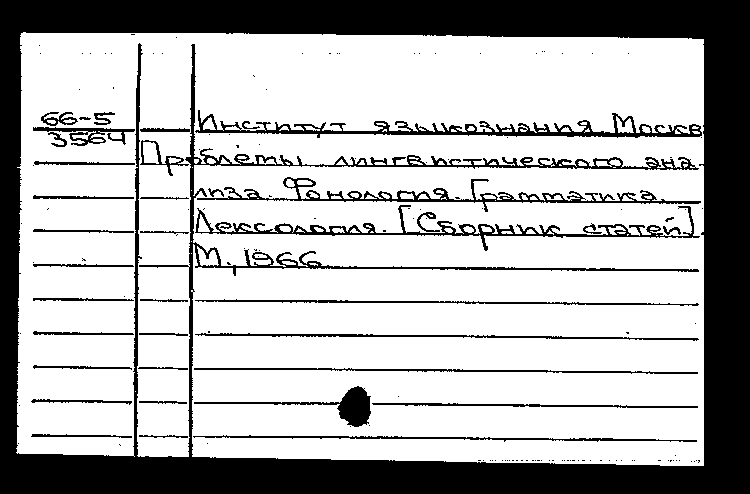 66-5
3564
Институт языкознания. Москва
Проблемы лингвистического ана-
лиза. Фонология. Грамматика.
Лексология. [Сборник статей].
М., 1966